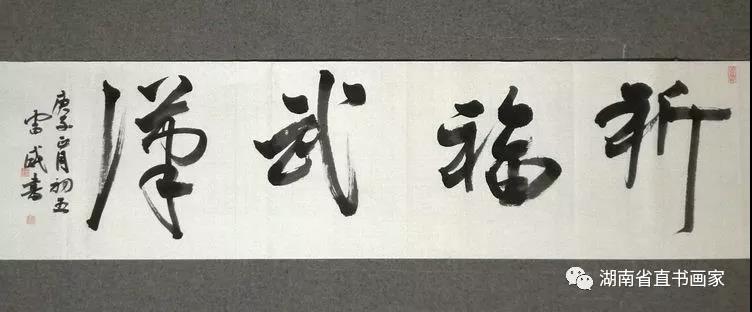 祈福武漢
庚子正月初五
雷成書
湖南省直书画家